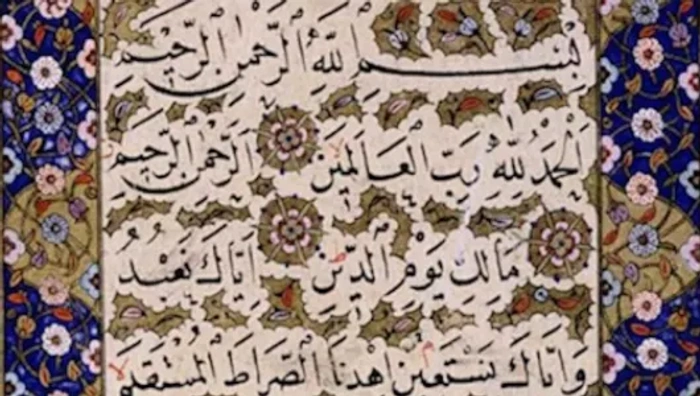 بِسْمِ اللَّهِ الرَّحْمٰنِ الرَّحِيمِ
اَلْحَمْدُ لِلّٰهِ رَبِّ الْعَالَمِينَ الرَّحْمٰنِ الرَّحِيمِ
مَالِكِ يَوْمِ الدِّينِ اِيَّاكَ نَعْبُدُ
وَاِيَّاكَ نَسْتَعِينُ اِهْدِنَا الصِّرَاطَ الْمُسْتَقِيمَ